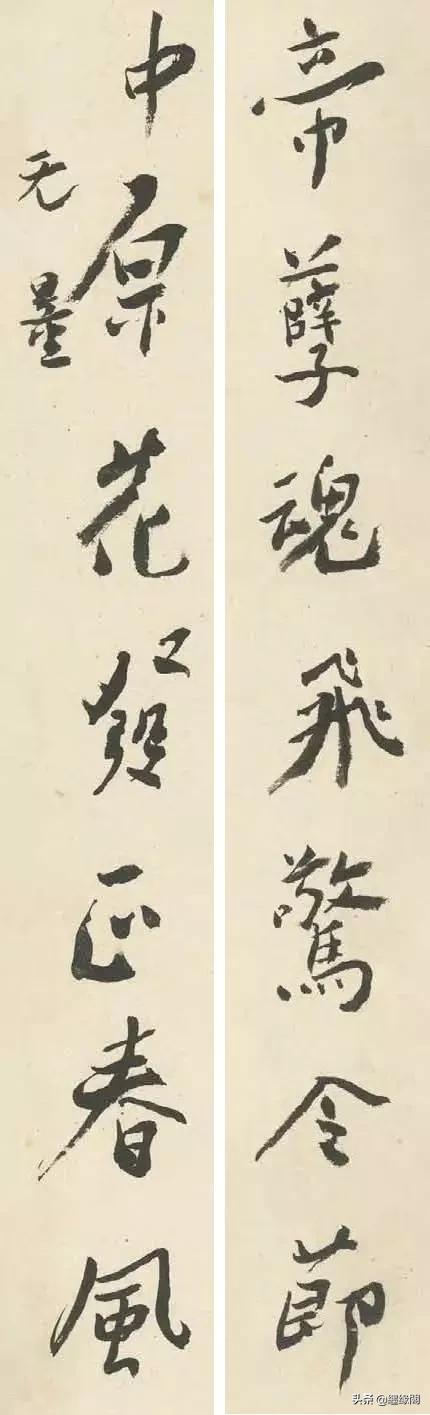 帝孽魂飛驚令節
中原花發正春風
无量
头条